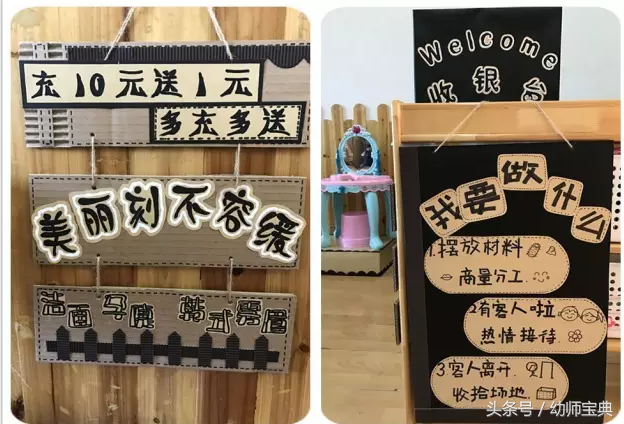 充10元送1元
多充多送
美丽刻不容缓
洁面 马 韩式雾眉
Welcome
收银台
我要做什么
1.摆放材料
商量分工.
2有客人啦
热情接待.
3客人离开.
收拾场地.
头条号 / 幼师宝典